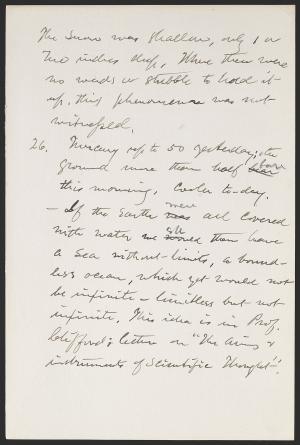 The snow was shallow, only 1 or
two inches deep. Where there were
no weeds or stubble to hold it
up, this phenomenon was not
witnessed.
26. Mercury up to 50 yesterday; the
ground more than half bare
bear
this morning. Cooler to-day.
were
— If the Earth was all covered
sh
with water we would then have
a sea without limits, a bound-
less ocean, which yet would not
be infinite — limitless but not
infinite. This idea is in Prof.
Clifford's lecture on "The aims &
instruments of Scientific Thought".